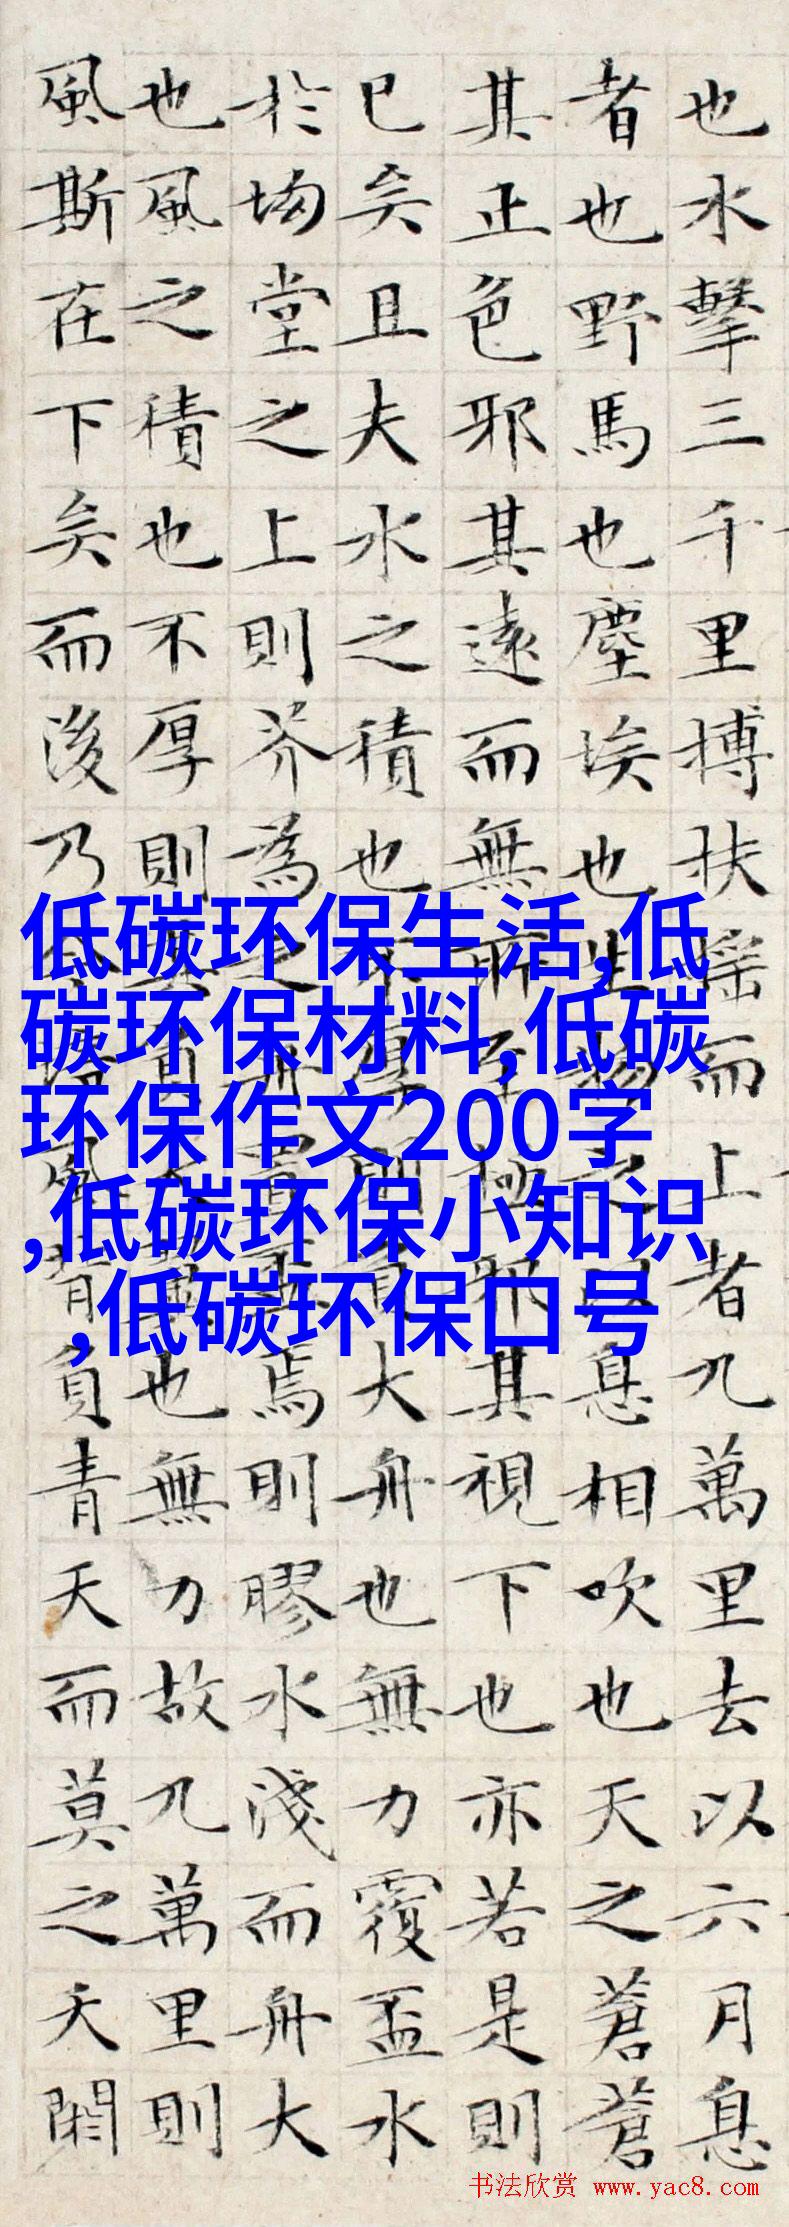 也水擊三千里搏扶搖而上者九萬里去以六月息
者也野馬也塵埃也生物之以息相吹也天之蒼蒼
其正色邪其遠而無所至極邪其視下也亦若是則
已矣且夫水之積也不厚則負大舟也無力覆盃水
於坳堂之上則芥為之舟置盃焉則膠水淺而舟大
也風之積也不厚則其負大翼也無力故九萬里則
風斯在下矣而後乃今培風背負青天而莫之夭閼
低碳环保生活,低
碳环保材料,低碳
环保作文200字
,低碳环保小知识
,低碳环保口号
书法欣赏 www.yac8.com